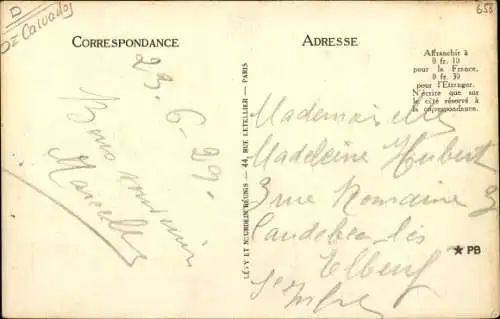 D
Dz Calvados
658
CORRESPONDANCE
23-6-29-
Bons souvenirs
Marcelle
LÉVY ET NEURDEIN RÉUNIS — 44, RUE LETELLIER — PARIS
ADRESSE
Affranchir à
0 fr. 10
pour la France,
0 fr. 30
pour l'Etranger.
N'écrire que sur
le côté réservé à
la correspondance.
Mademoiselle
Madeleine Hubert
3 rue Romaine 3
Caudebec les
Elbeuf
Sne Infre
★ PB